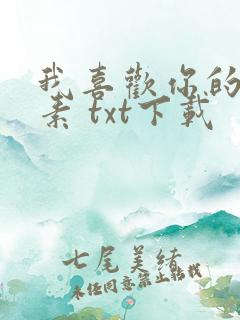 我喜歡你的
素 txt下載
七尾美緒
未经同意禁止转载